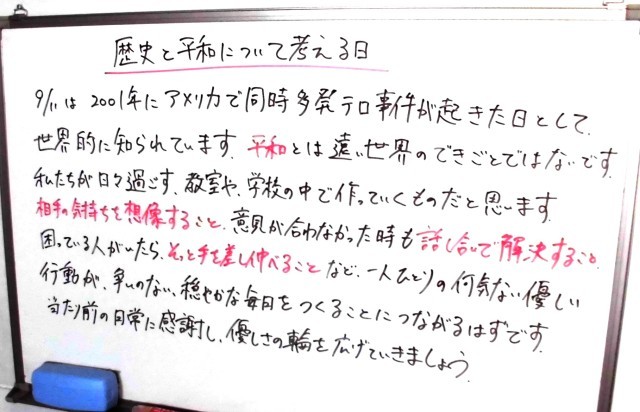 歴史と平和について考える日
9/11は2001年にアメリカで同時多発テロ事件が起きた日として、
世界的に知られています。平和とは遠い世界のできごとではないです。
私たちが日々過ごす、教室や、学校の中で作っていくものだと思います。
相手の気持ちを想像すること、意見が合わなかった時も話し合いで解決すること、
困っている人がいたら、そっと手を差し伸べることなど、一人ひとりの何気ない優しい
行動が、争いのない、穏やかな毎日をつくることにつながるはずです。
当たり前の日常に感謝し、優しさの輪を広げていきましょう。